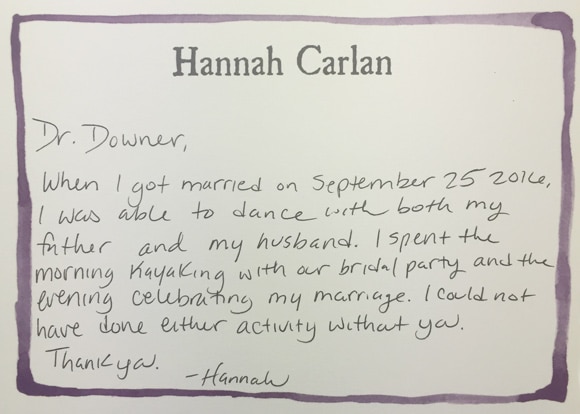 Hannah Carlan
Dr. Downer,
When I got married on September 25 2016,
I was able to dance with both my
father and my husband. I spent the
morning kayaking with our bridal party and the
evening celebrating my marriage. I could not
have done either activity without you.
Thank you.
-Hannah